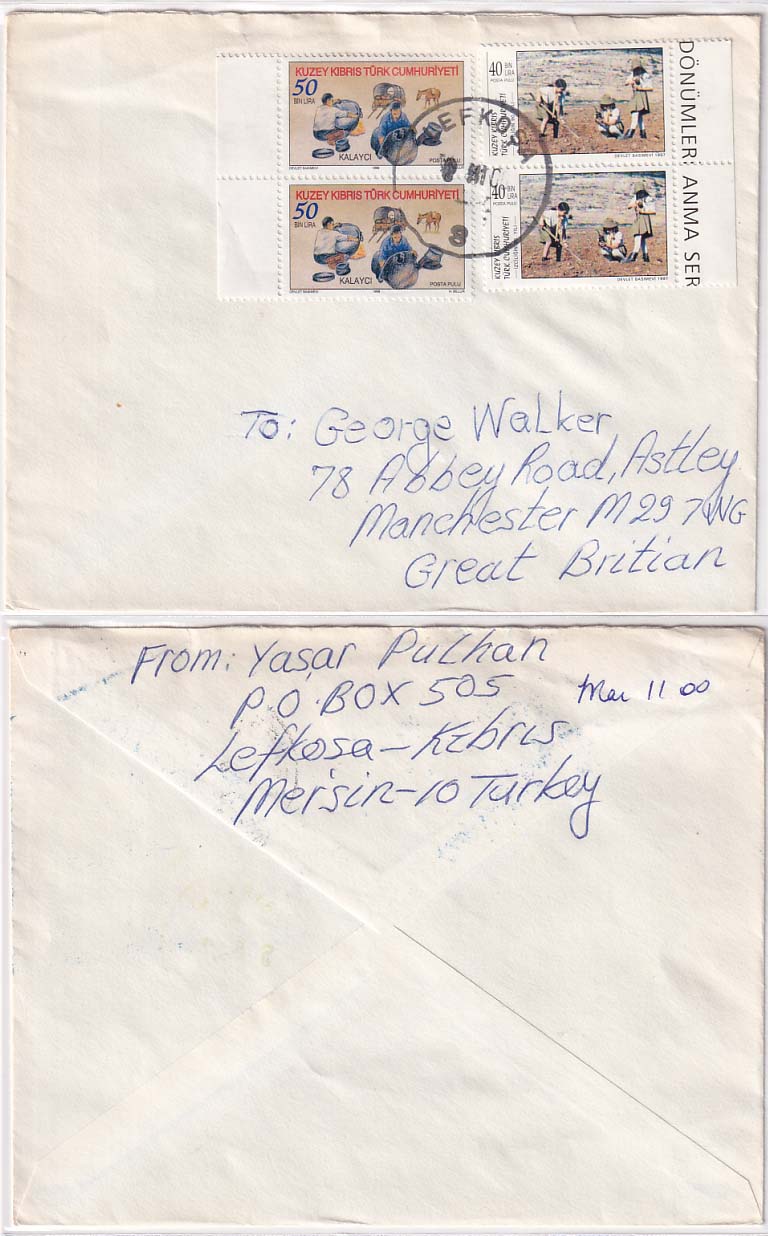 KUZEY KIBRIS TÜRK CUMHURİYETİ
50
BİN LİRA
KALAYCI
POSTA PULU
DEVLET BASIMEVİ 1998
KUZEY KIBRIS TÜRK CUMHURİYETİ
50
BİN LİRA
KALAYCI
POSTA PULU
DEVLET BASIMEVİ 1998
40 BİN LİRA
POSTA PULU
KUZEY KIBRIS
TÜRK CUMHURİYETİ
DEVLET BASIMEVİ 1997
40 BİN LİRA
POSTA PULU
KUZEY KIBRIS
TÜRK CUMHURİYETİ
DEVLET BASIMEVİ 1997
DÖNÜMLERİ ANMA SER
LEFKOŞA
3
To: George Walker
78 Abbey Road, Astley
Manchester M29 7WG
Great Britian
From: Yaşar Pulhan
P.O.BOX 505
Mar 11 00
Lefkosa-Kıbrıs
Mersin-10 Turkey